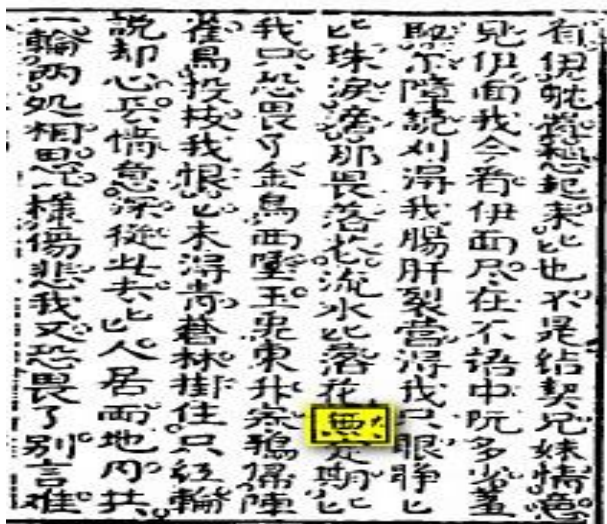 有伊躭當想起来匕也不是结契兄妹情意
見伊面我今看伊面尽在不語中阮多少羞
不障說刈得我腸肝裂當得我只眼睁匕
匕珠淚滂那畏落花流水匕落花無定期匕
我只恐畏了金烏西墜玉兎東升寒鴉歸陣
雀鳥投枝我恨匕未得林掛住只紅輪
說却心情意深從此去匕人居兩地月共
一輪两处相思一樣傷悲我又恐畏了别言难